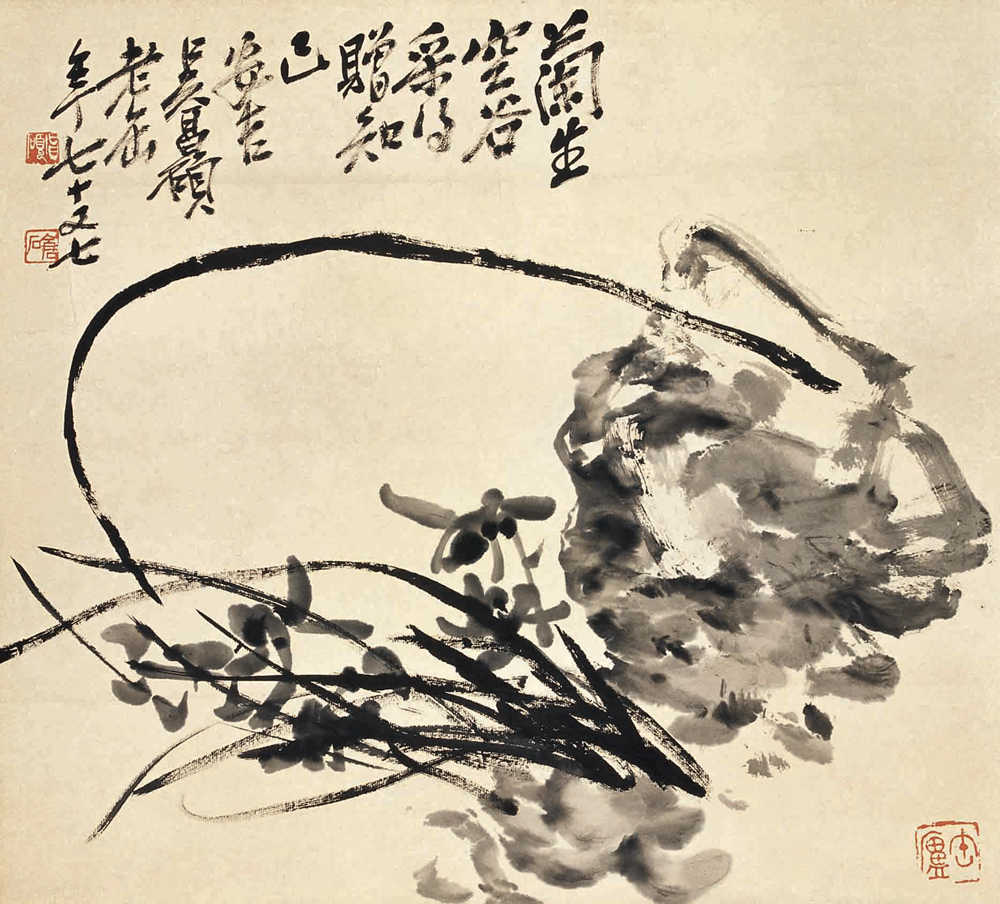 蘭生
空谷
采得
贈知
己
安吉
吳昌碩
老缶
年七十又七
缶廬